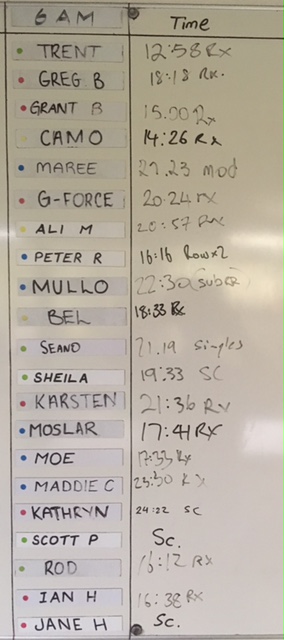 6 AM Time
TRENT 12:58 Rx
GREG B 18:18 Rx.
GRANT B 15.00 Rx
CAMO 14:26 Rx
MAREE 27.23 mod
G-FORCE 20.24 rx
ALI M 20:57 Rx
PETER R 16:16 Row x2
MULLO 22:30
BEL 18:33 Rx
SEANO 21.19 singles
SHEILA 19:33 SC
KARSTEN 21:36 Rx
MOSLAR 17:41 RX
MOE 17:33 Rx
MADDIE C 23:30 Rx
KATHRYN 24:22 SC
SCOTT P Sc.
ROD 16:12 RX
IAN H 16:38 RX
JANE H Sc.